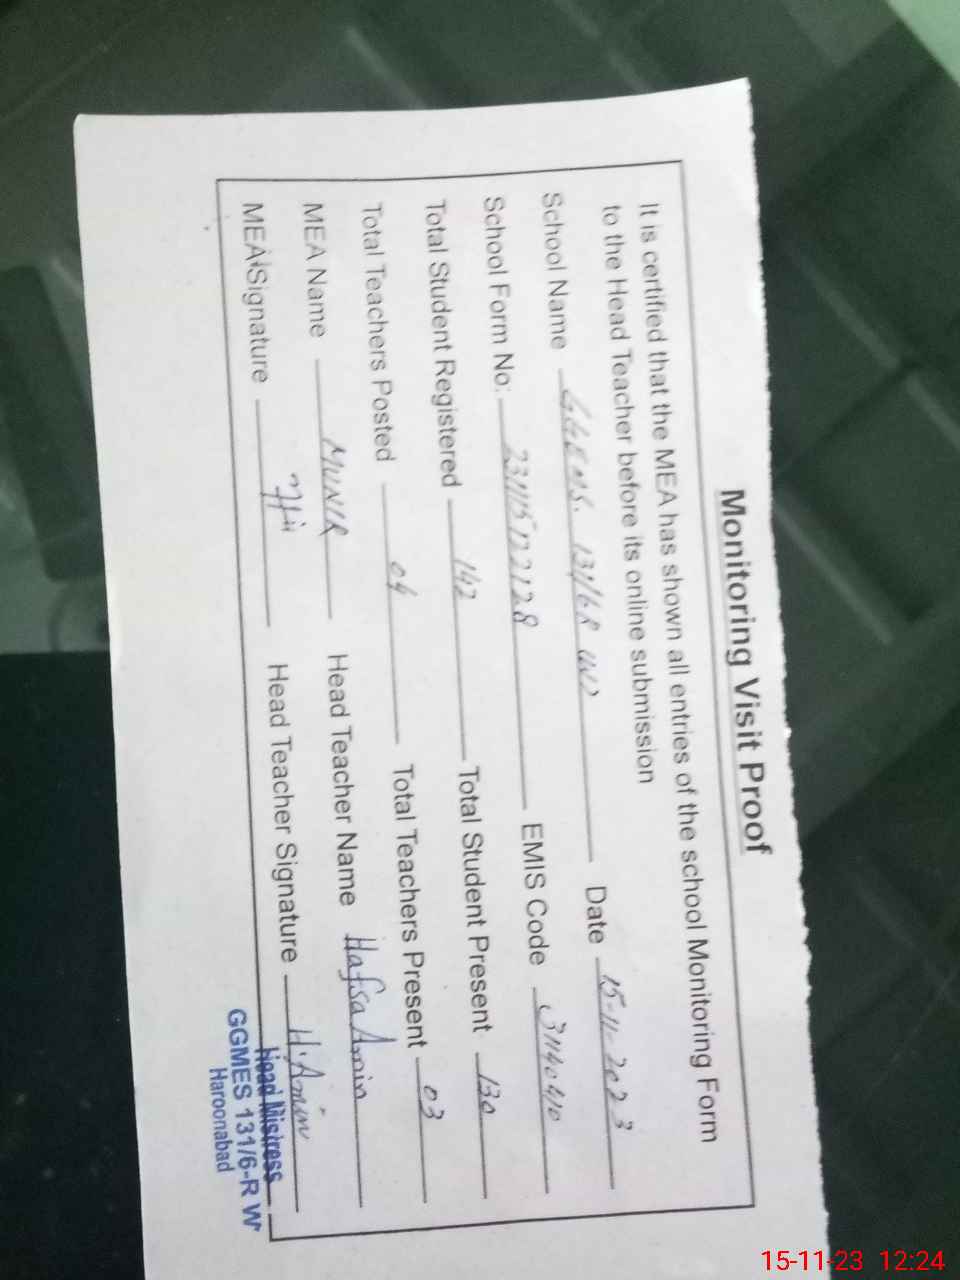 Monitoring Visit Proof
It is certified that the MEA has shown all entries of the school Monitoring Form
to the Head Teacher before its online submission
School Name GGEMS. 131/6R Date 15-11-2023
School Form No: 23111512 2128 EMIS Code 31140410
Total Student Registered 142 Total Student Present 130
Total Teachers Posted 04 Total Teachers Present 03
MEA Name MUNIR Head Teacher Name Hafsa Amin
MEA Signature Head Teacher Signature H.Amin
Head Mistress
GGMES 131/6-R W
Haroonabad
15-11-23 12:24